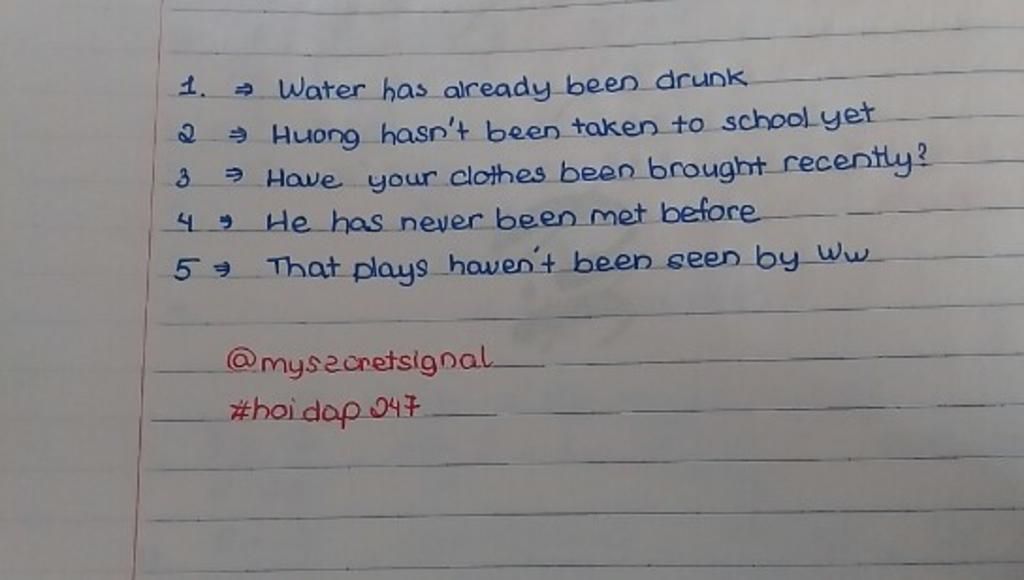 1. ⇒ Water has already been drunk
2 ⇒ Huong hasn't been taken to school yet
3 ⇒ Have your clothes been brought recently?
4 ⇒ He has never been met before
5 ⇒ That plays haven't been seen by Ww
@mysecretsignal
#hoidap247